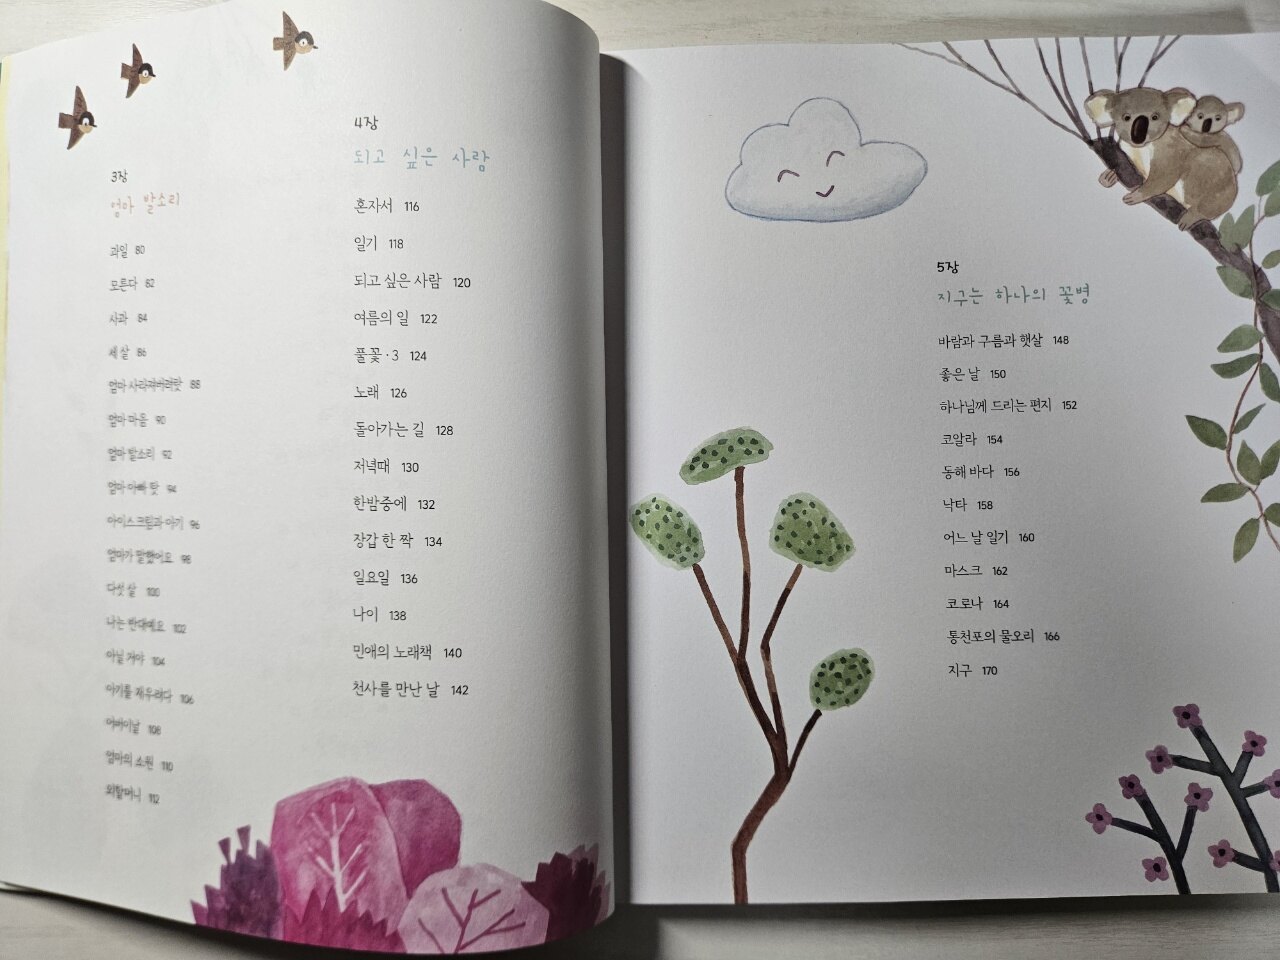 3장
엄마 발소리
과일 80
모른다 82
사과 84
세 살 86
엄마 사라져버려랏 88
엄마 마음 90
엄마 발소리 92
엄마 아빠 탓 94
아이스크림과 아기 96
엄마가 말했어요 98
다섯 살 100
나는 반대예요 102
아닐 거야 104
아기를 재우려다 106
어버이날 108
엄마의 소원 110
외할머니 112
4장
되고 싶은 사람
혼자서 116
일기 118
되고 싶은 사람 120
여름의 일 122
풀꽃·3 124
노래 126
돌아가는 길 128
저녁때 130
한밤중에 132
장갑 한 짝 134
일요일 136
나이 138
민애의 노래책 140
천사를 만난 날 142
5장
지구는 하나의 꽃병
바람과 구름과 햇살 148
좋은 날 150
하나님께 드리는 편지 152
코알라 154
동해 바다 156
낙타 158
어느 날 일기 160
마스크 162
코로나 164
통천포의 물오리 166
지구 170